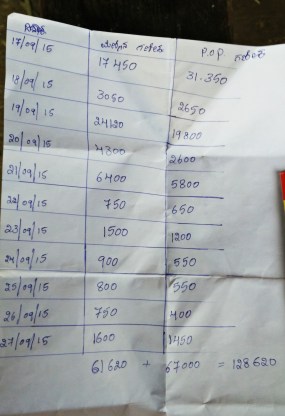 ದಿನಾಂಕ ಮಣ್ಣಿನ ಗಣೇಶ P.O.P ಗಣೇಶ
17/09/15 17450 31.350
18/09/15 3050 2650
19/09/15 24120 19800
20/09/15 4300 2600
21/09/15 6400 5800
22/09/15 750 650
23/09/15 1500 1200
24/09/15 900 550
25/09/15 800 550
26/09/15 750 400
27/09/15 1600 1450
61620 + 67000 = 128620